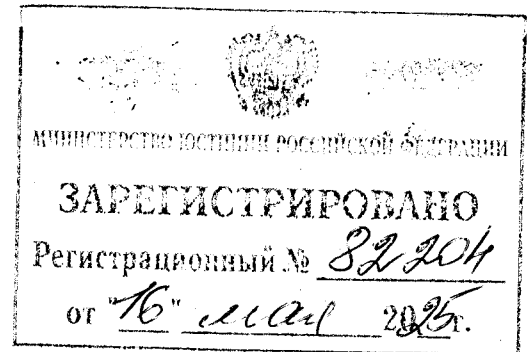 МИНИСТЕРСТВО ЮСТИЦИИ РОССИЙСКОЙ ФЕДЕРАЦИИ
ЗАРЕГИСТРИРОВАНО
Регистрационный № 82204
от "16" мая 2025г.